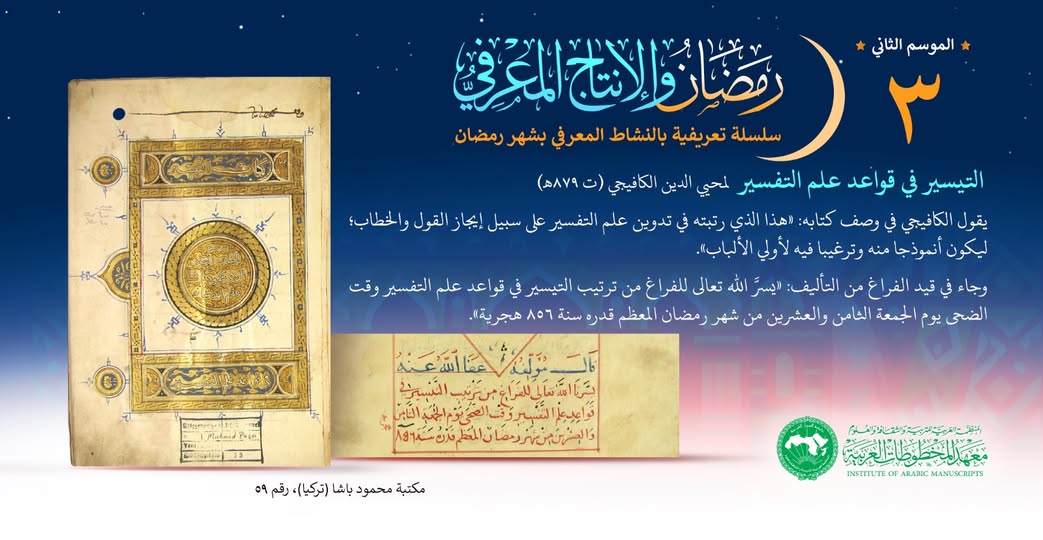 الموسم الثاني
٣
رمضان والإنتاج المعرفي
سلسلة تعريفية بالنشاط المعرفي بشهر رمضان
التيسير في قواعد علم التفسير لمحيي الدين الكافيجي (ت ٨٧٩هـ)
يقول الكافيجي في وصف كتابه: «هذا الذي رتبته في تدوين علم التفسير على سبيل إيجاز القول والخطاب؛
ليكون أنموذجا منه وترغيبا فيه لأولي الألباب».
وجاء في قيد الفراغ من التأليف: «يسرَّ الله تعالى للفراغ من ترتيب التيسير في قواعد علم التفسير وقت
الضحى يوم الجمعة الثامن والعشرين من شهر رمضان المعظم قدره سنة ٨٥٦ هجرية».
قال مؤلفه عفا الله عنه
يسر الله تعالى للفراغ من ترتيب التيسير في
قواعد علم التفسير وقت الضحى يوم الجمعة الثامن
والعشرين من شهر رمضان المعظم قدره سنة ٨٥٦
Mahmud Paşa
المنظمة العربية للتربية والثقافة والعلوم
معهد المخطوطات العربية
INSTITUTE OF ARABIC MANUSCRIPTS
مكتبة محمود باشا (تركيا)، رقم ٥٩